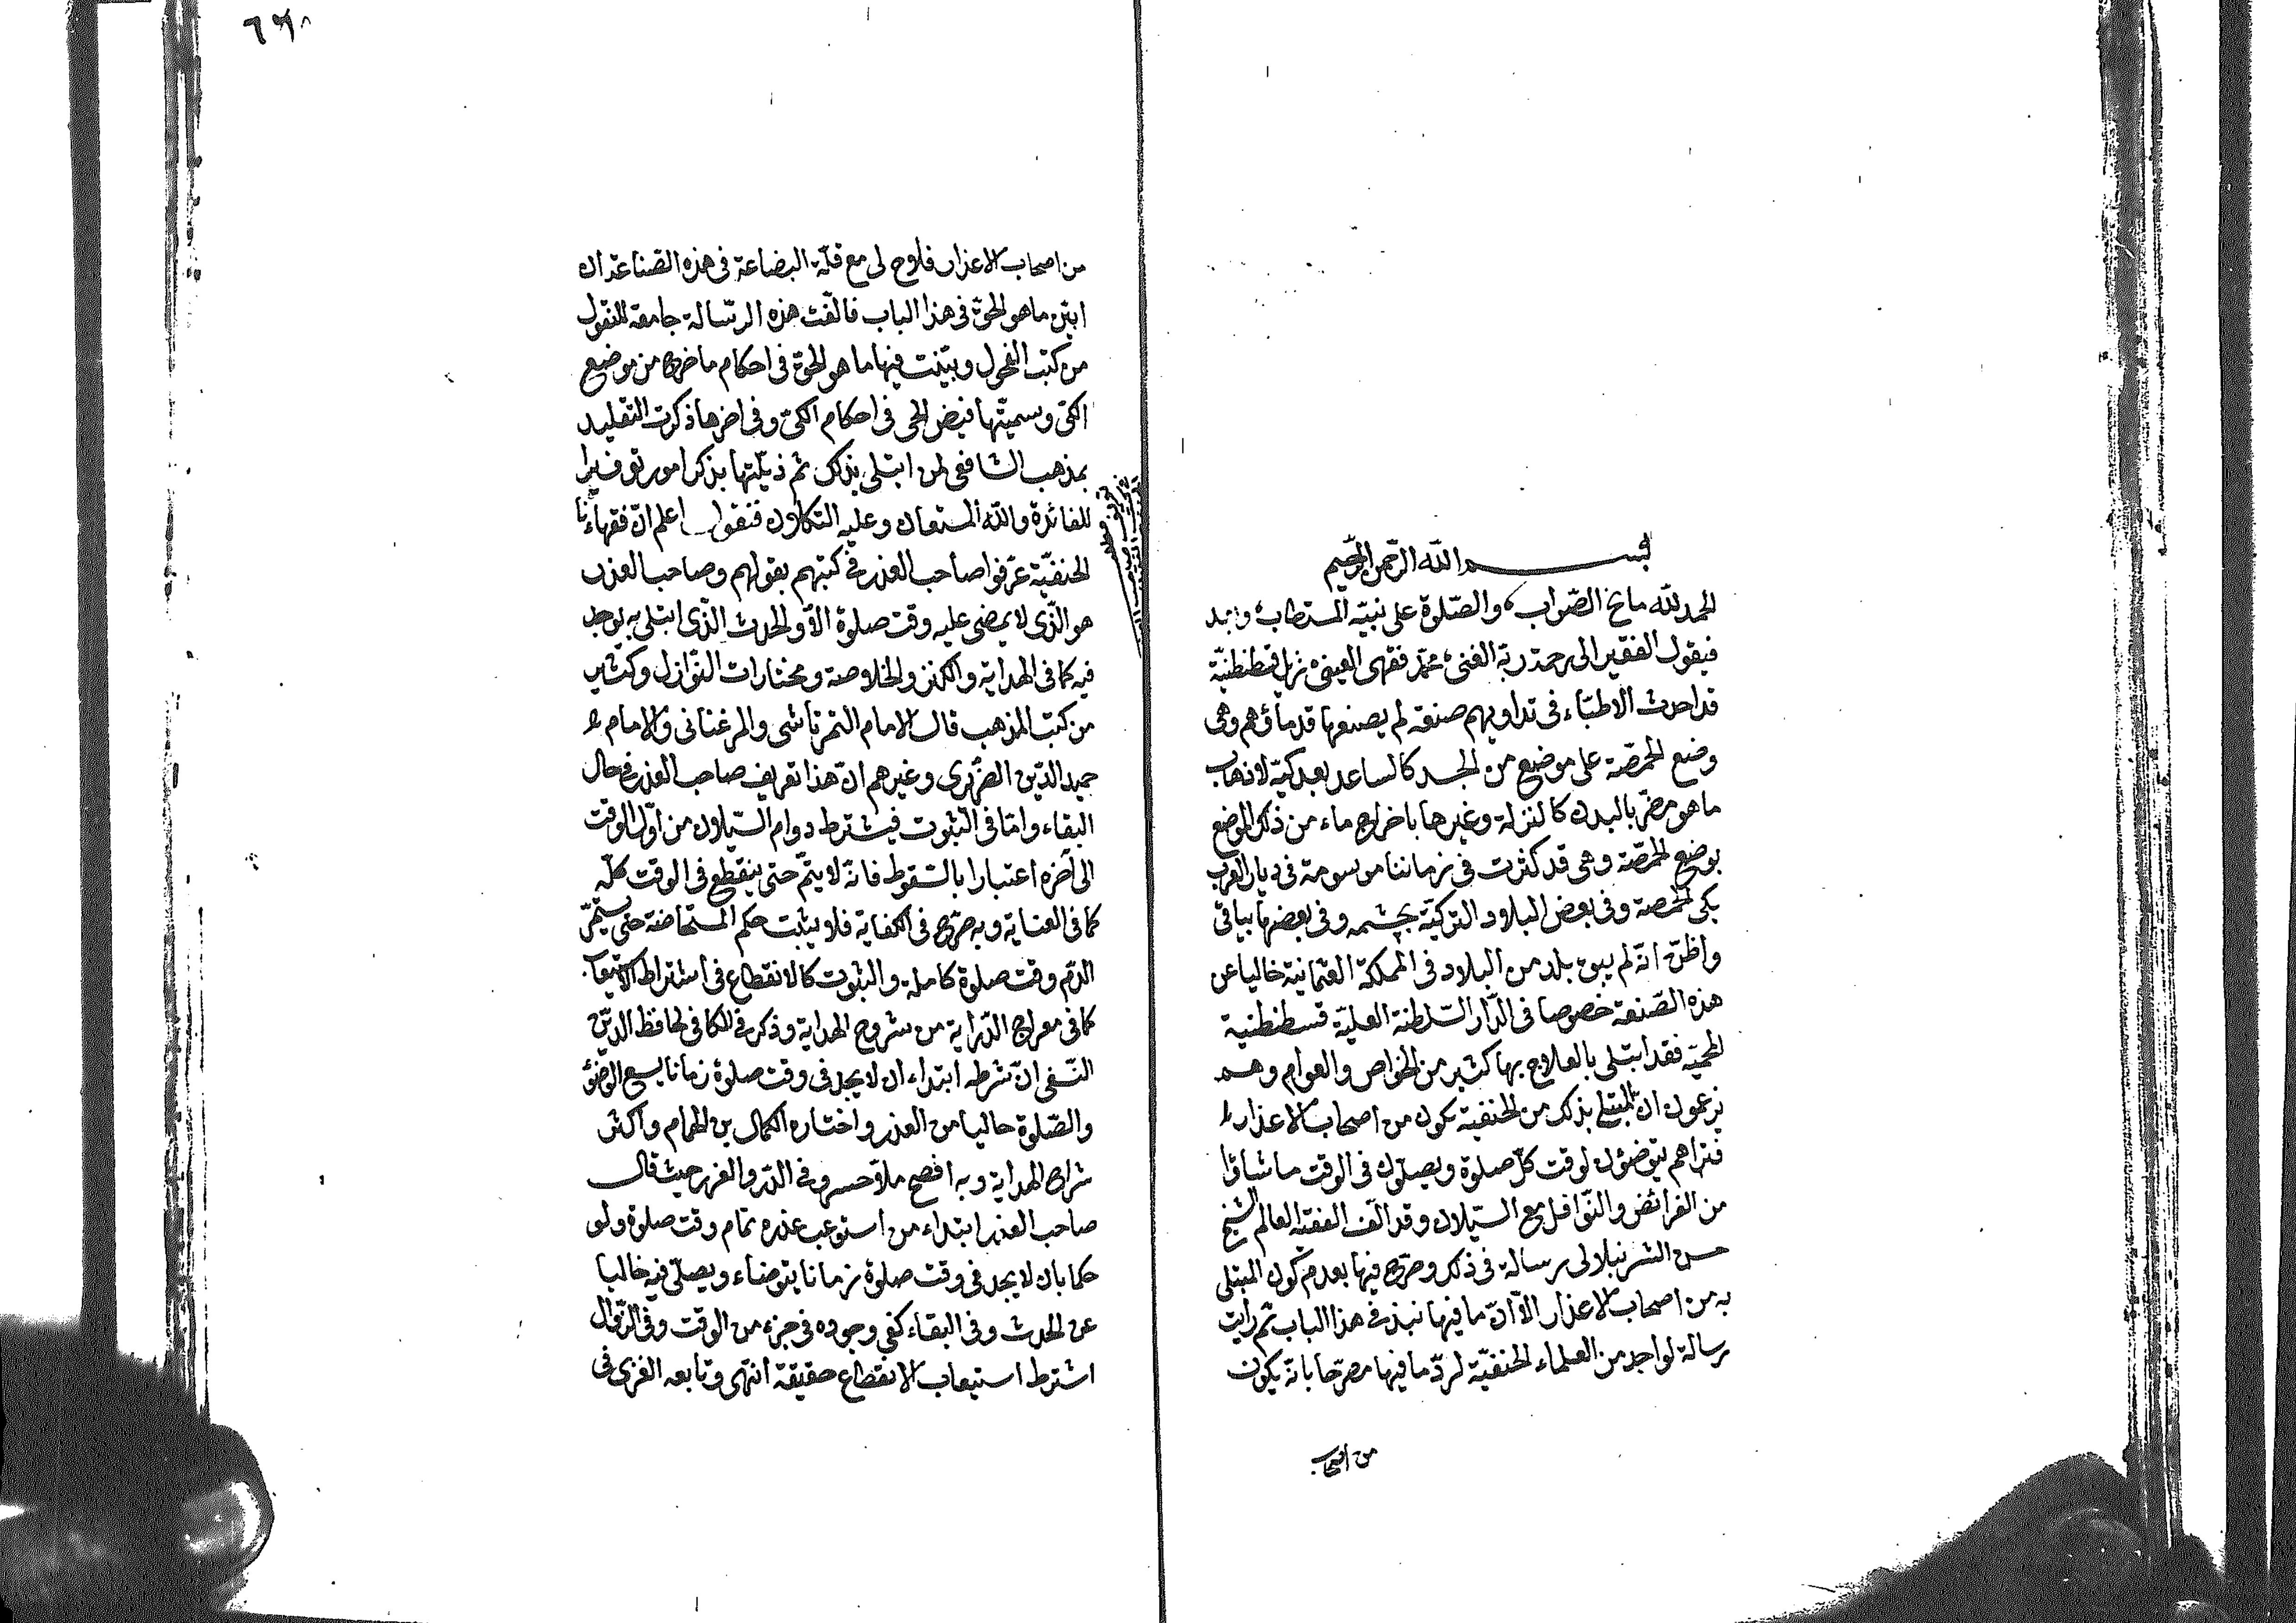 بسم الله الرحمن الرحيم
الحمد لله مانح الصواب والصلوة على نبيه المستطاب وبعد
فيقول الفقير الى رحمة ربه الغنى محمد فقهى العينى نزيل قسطنطنيّة
قد احدث الاطبّاء فى تداويهم صنعة لم يصنعها قدماؤهم وهى
وضع الحمّصة على موضع من الجسد كالساعد بعد كيّه لاذهاب
ما هو مضرّ بالبدن كالنزلة وغيرها باخراج ماء من ذلك الموضع
بوضع الحمّصة وهى قد كثرت فى زماننا موسومة فى ديار العرب
بكى الحمّصة وفى بعض البلاد التركيّة بچشمه وفى بعضها بياقى
واظنّ انّه لم يبق بلد من البلاد فى المملكة العثمانيّة خاليا عن
هذه الصّنعة خصوصا فى الدّار السّلطنة العليّة قسطنطنية
المحميّة فقد ابتلى بالعلاج بها كثير من الخواص والعوام وهم
يزعمون انّ المبتلى بذلك من الحنفيّة يكون من اصحاب الاعذار
فتراهم يتوضؤن لوقت كلّ صلوة ويصلّون فى الوقت ما شاؤا
من الفرائض والنّوافل مع السّيلان وقد الّف الفقيه العالم الشيخ
حسن الشرنبلالى رسالة فى ذلك وصرّح فيها بعدم كون المبتلى
به من اصحاب الاعذار الّا انّ ما فيها نبذ فى هذا الباب ثم رايت
رسالة لواحد من العلماء الحنفيّة لردّ ما فيها مصرّحا بانّه يكون
من اصحاب
٦٩٨
من اصحاب الاعذار فلاح لى مع قلّة البضاعة فى هذه الصناعة ان
ابيّن ما هو الحقّ فى هذا الباب فالّفت هذه الرّسالة جامعة للنقول
من كتب الفحول وبيّنت فيها ما هو الحقّ فى احكام ما خرج من موضع
الكىّ وسميّتها فيض الحى فى احكام الكىّ وفى اخرها ذكرت التقليد
بمذهب الشافعى لمن ابتلى بذلك ثم ذيّلتها بذكر امور توفيرا
للفائدة والله المستعان وعليه التكلان فنقول اعلم انّ فقهاءنا
الحنفيّة عرّفوا صاحب العذر فى كتبهم بقولهم وصاحب العذر
هو الّذى لا يمضى عليه وقت صلوة الّا والحدث الّذى ابتلى به يوجد
فيه كما فى الهداية والكنز والخلاصة ومختارات النّوازل وكثير
من كتب المذهب قال الامام التمرتاشى والمرغنانى والامام
حميد الدّين الضّرير وغيرهم انّ هذا تعريف صاحب العذر فى حال
البقاء وامّا فى الثبوت فيشترط دوام السّيلان من اوّل الوقت
الى آخره اعتبارا بالسّقوط فانّه لا يتمّ حتى ينقطع فى الوقت كلّه
كما فى العناية وبه صرّح فى الكفاية فلا يثبت حكم المستحاضة حتى يستمرّ
الدّم وقت صلوة كاملة والثبوت كالانقطاع فى اشتراط الاستيعاب
كما فى معراج الدّراية من شروح الهداية وذكر فى الكافى لحافظ الدّين
النّسفى انّ شرطه ابتداء ان لا يجد فى وقت صلوة زمانا يسع الوضؤ
والصّلوة خاليا من العذر واختاره الكمال بن الهمام واكثر
شراح الهداية وبه افصح ملّا خسرو فى الدّرر والغرر حيث قال
صاحب العذر ابتداء من استوعب عذره تمام وقت صلوة ولو
حكما بان لا يجد فى وقت صلوة زمانا يتوضاء ويصلّى فيه خاليا
عن الحدث وفى البقاء كفى وجوده فى جزء من الوقت وفى الزّوال
اشترط استيعاب الانقطاع حقيقة انتهى وتابعه الغزى فى